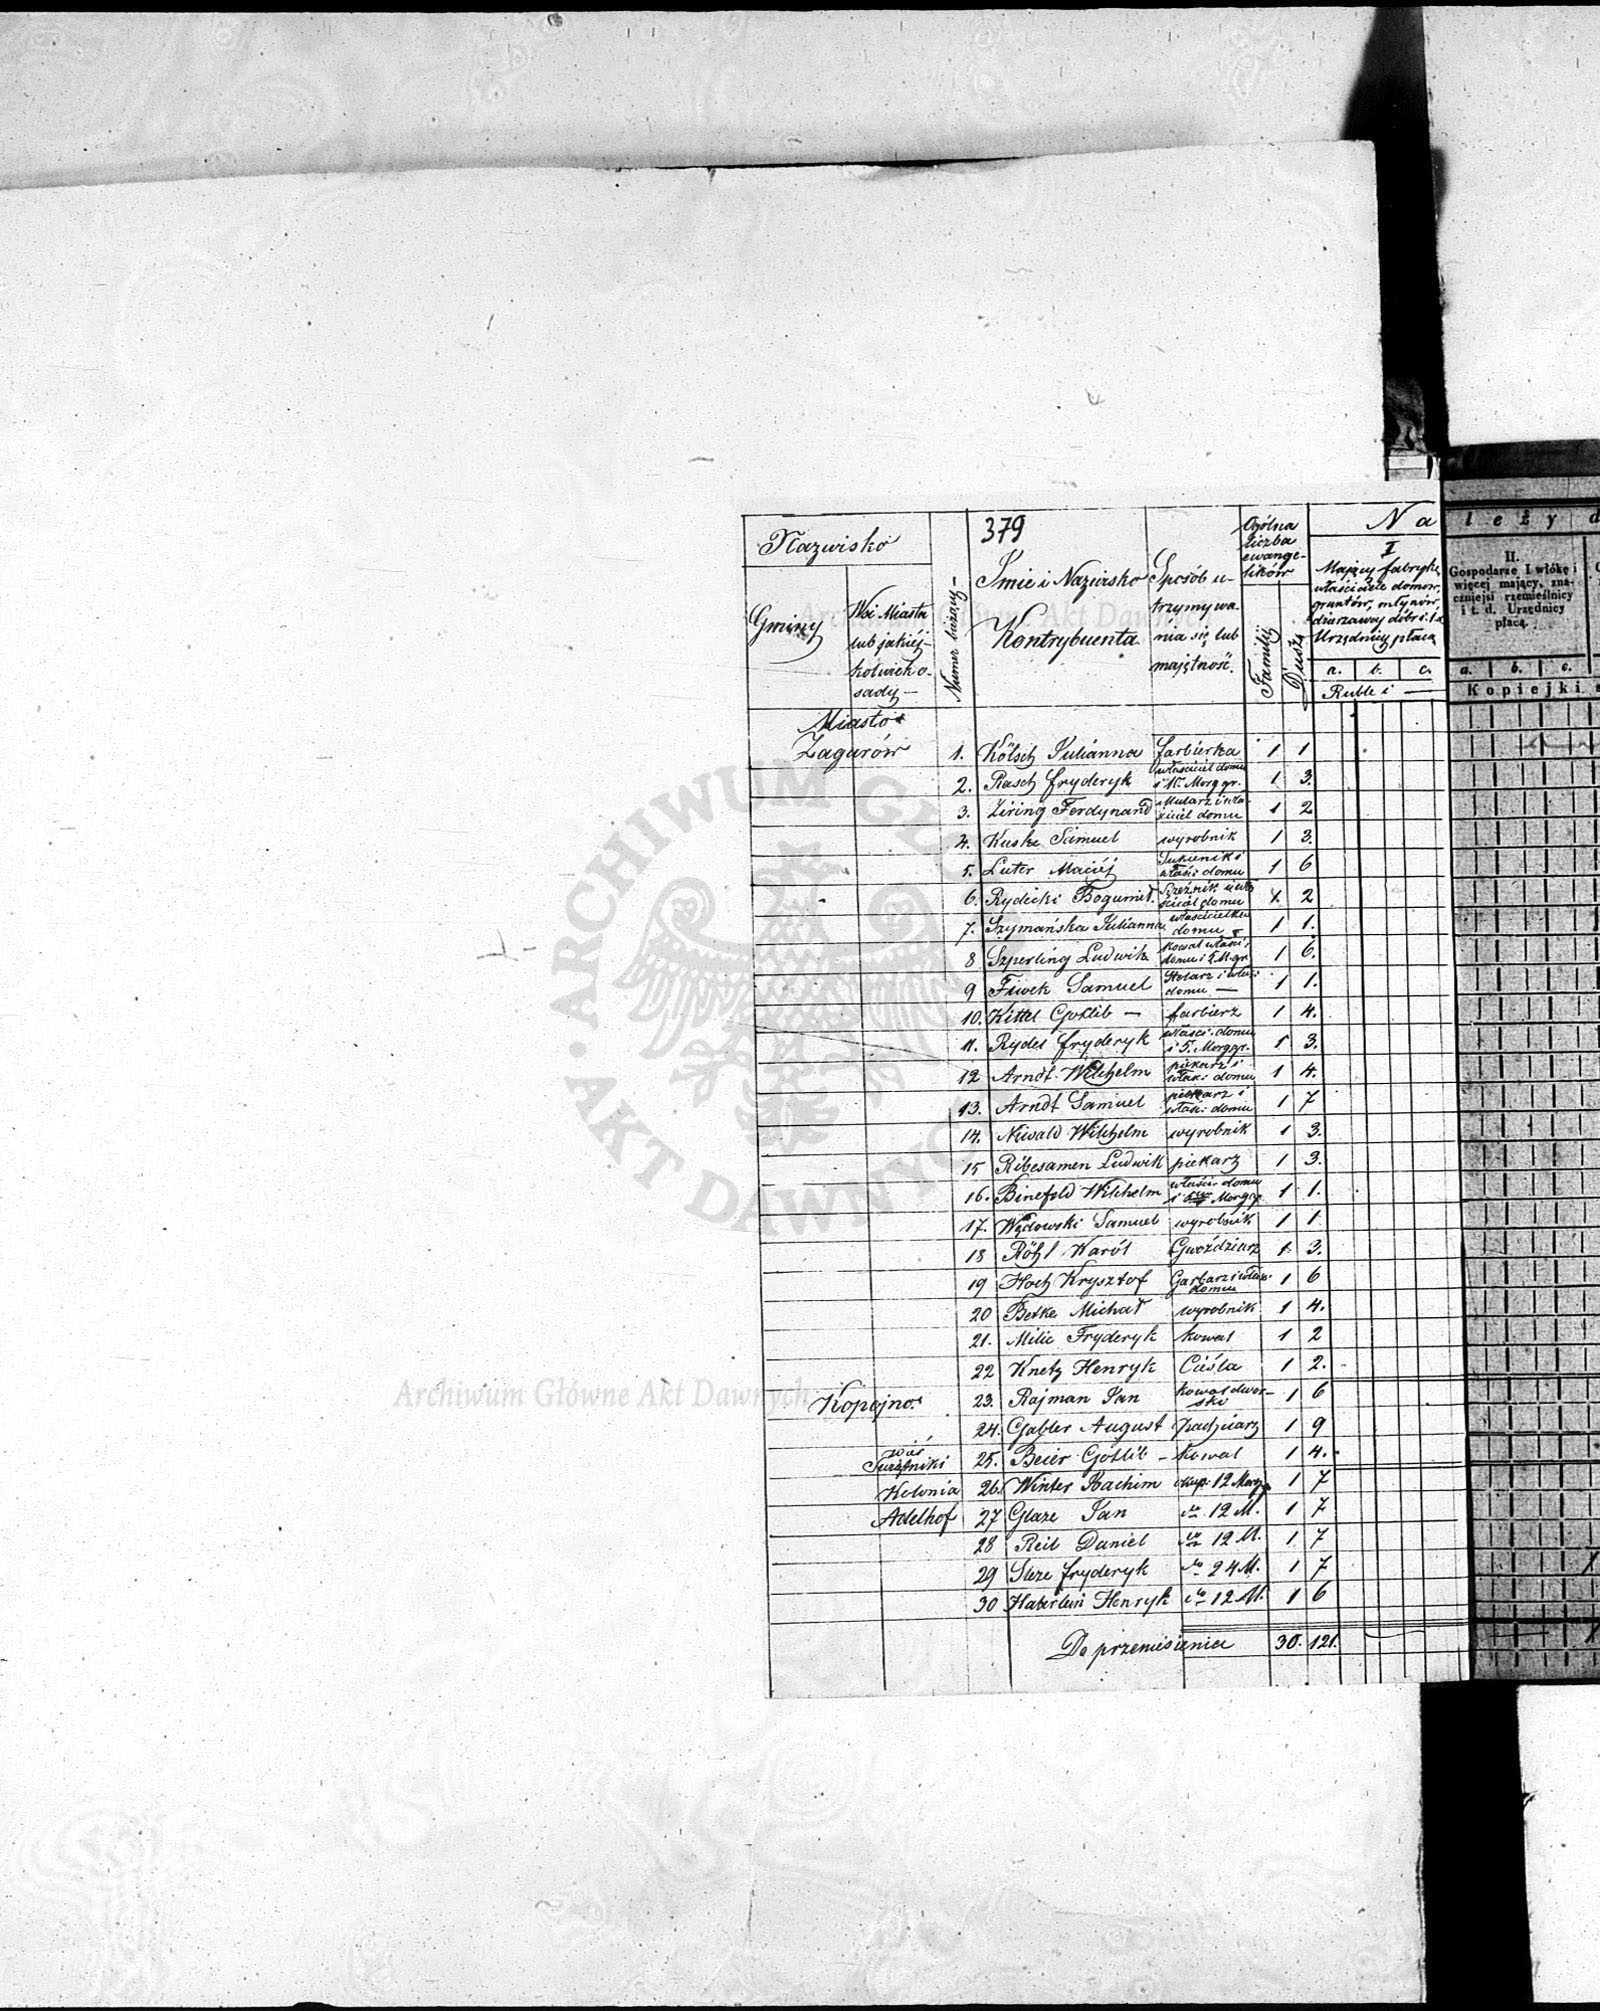 379
Nazwisko
Gminy
Wsi Miasta
lub jakiej-
kolwiek o-
sady —
Numer bieżący —
Imie i Nazwisko
Kontrybuenta
Sposób u-
trzymywa-
nia się lub
majętność.
Ogólna
liczba
ewange-
lików
Familij
Dusz
Na
I
Mający fabrykę,
właściciele domów,
gruntów, młynów,
Urzędnicy płacą
a. b. c.
Ruble i —
leży d
II.
Gospodarze I włókę i
więcej mający, zna-
czniejsi rzemieślnicy
i t. d. Urzędnicy
płacą.
a. b. c.
Kopiejki s
Miasto
Zagurów
1. Kölsch Julianna farbierka 1 1
2. Rasch Fryderyk właściciel domu i Morg gr. 1 3.
3. Ziring Ferdynand Mularz i wła-ściciel domu 1 2
4. Kuske Samuel wyrobnik 1 3.
5. Luter Maciej Sukienik i właści domu 1 6
6. Rydecki Bogumił. Rzeźnik i wła ściciel domu 1 2
7. Szymańska Julianna właścicielka domu 1 1.
8 Szperling Ludwik kowal właści: domu i M. gr. 1 6.
9 Fiwek Samuel Stolarz i właś: domu — 1 1.
10. Kittel Gotlib — farbierz 1 4.
11. Rydel Fryderyk właści. domu i 5. Morg gr. 1 3.
12 Arndt Wilchelm piekarz i właści domu 1 4.
13. Arndt Samuel piekarz i właśc: domu 1 7
14. Niwald Wilchelm wyrobnik 1 3.
15 Ribesamen Ludwik piekarz 1 3.
16. Binefeld Wilchelm właści. domu i Morg gr. 1 1.
17. Wędowski Samuel wyrobnik 1 1
18 Röhl Karól Gwoździarz 1 3.
19 Hoch Krysztof Garbarz i właś: domu 1 6
20 Betke Michał wyrobnik 1 4.
21. Milie Fryderyk kowal 1 2
22 Knetz Henryk Cieśla 1 2.
Kopojno.
23. Rajman Jan kowal dwor-ski 1 6
24. Gabler August 1 9
wieś
25. Beier Gotlib — kowal 1 4.
Kolonia
26. Winter Joachim okup: 12 Morg 1 7
Adelhof
27 Glaze Jan do 12 M. 1 7
28 Reil Daniel do 12 M. 1 7
29 Sleze Fryderyk do 24 M. 1 7
30 Haberlein Henryk do 12 M. 1 6
Do przeniesienia 30. 121.
ARCHIWUM GŁÓWNE AKT DAWNYCH
Archiwum Główne Akt Dawnych
Archiwum Główne Akt Dawnych